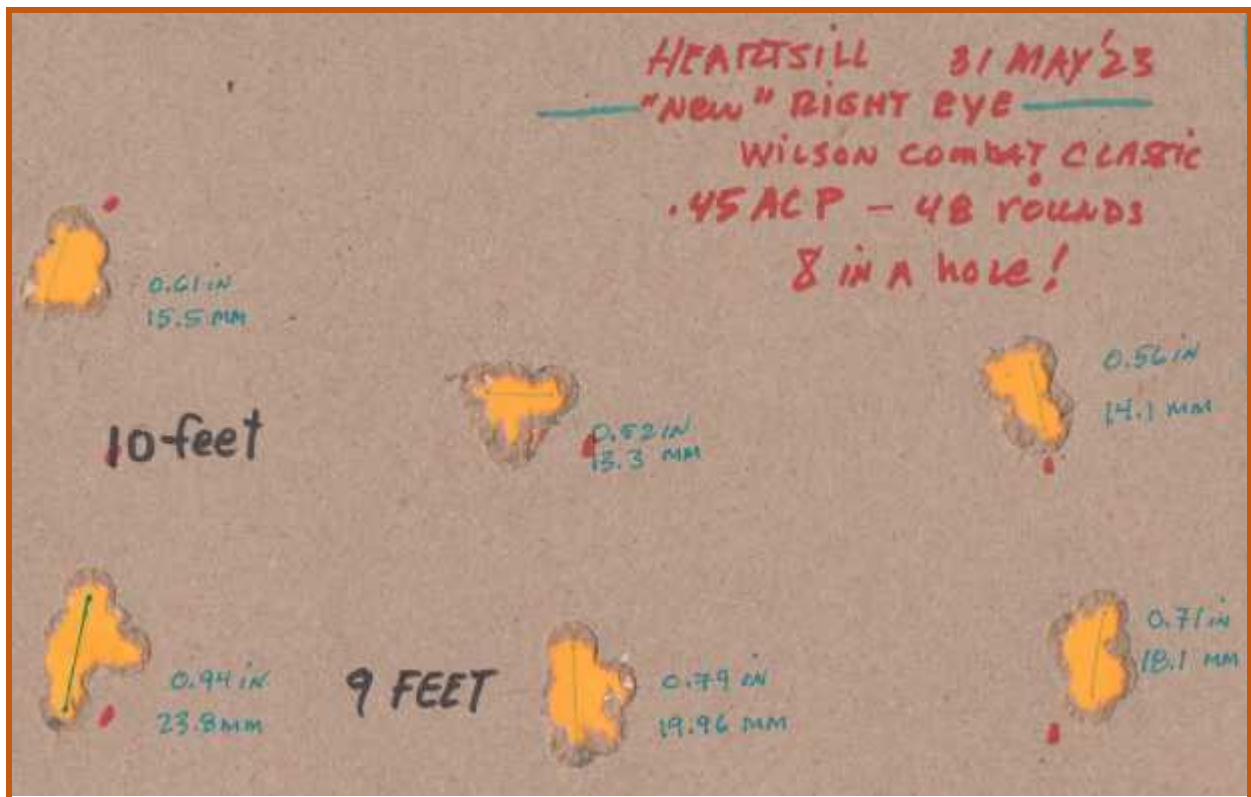 HEARTSILL 31 MAY '23
"NEW" RIGHT EYE
WILSON COMBAT CLASSIC
.45 ACP - 48 ROUNDS
8 IN A HOLE!
0.61 IN
15.5 MM
0.56 IN
14.1 MM
10-feet
0.52 IN
13.3 MM
0.71 IN
18.1 MM
0.94 IN
23.8 MM
9 FEET
0.79 IN
19.96 MM